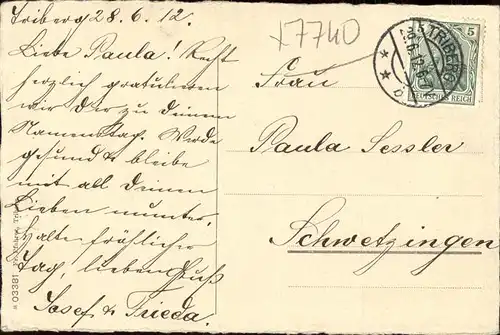 Triberg 28.6.12.
Liebe Paula! Recht
herzlich gratulieren
wir Dir zu Deinem
Namenstag. Werde
gesund & bleibe
mit all Deinen
Lieben munter.
Halte fröhlichen
Tag, lieben Gruß
Josef & Frieda.
x7740
TRIBERG
5
DEUTSCHES REICH
Frau
Paula Sessler
Schwetzingen
03381